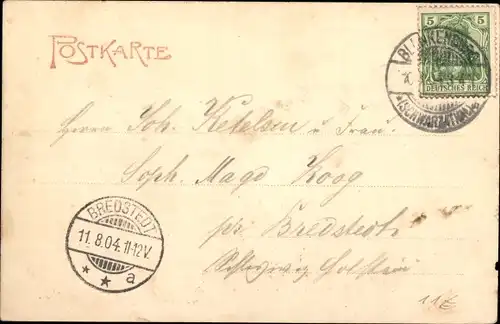 POSTKARTE
5 5
DEUTSCHES REICH
BLANKENBURG
(SCHWARZATHAL)
Herrn Joh. Ketelsen u Frau.
Soph. Magd Koog
p/r Bredstedt
Schleswig Holstein
BREDSTEDT
11.8.04.11-12V.
* * a
11 E